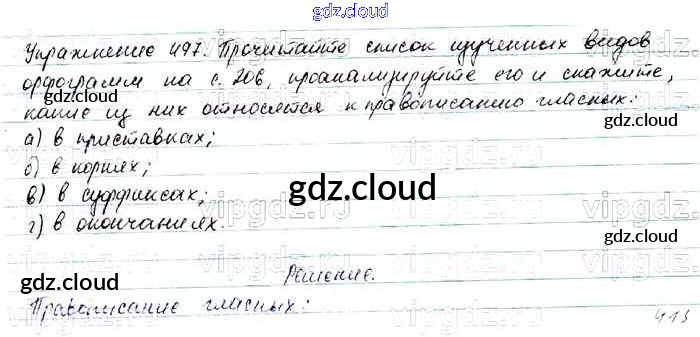 gdz.cloud
Упражнение 497. Прочитайте список изученных видов
орфограмм на с. 206, проанализируйте его и скажите,
gdz.cloud
какие из них относятся к правописанию гласных:
а) в приставках;
б) в корнях;
gdz.cloud
в) в суффиксах;
г) в окончаниях.
gdz.cloud gdz.cloud
Решение.
Правописание гласных:
413